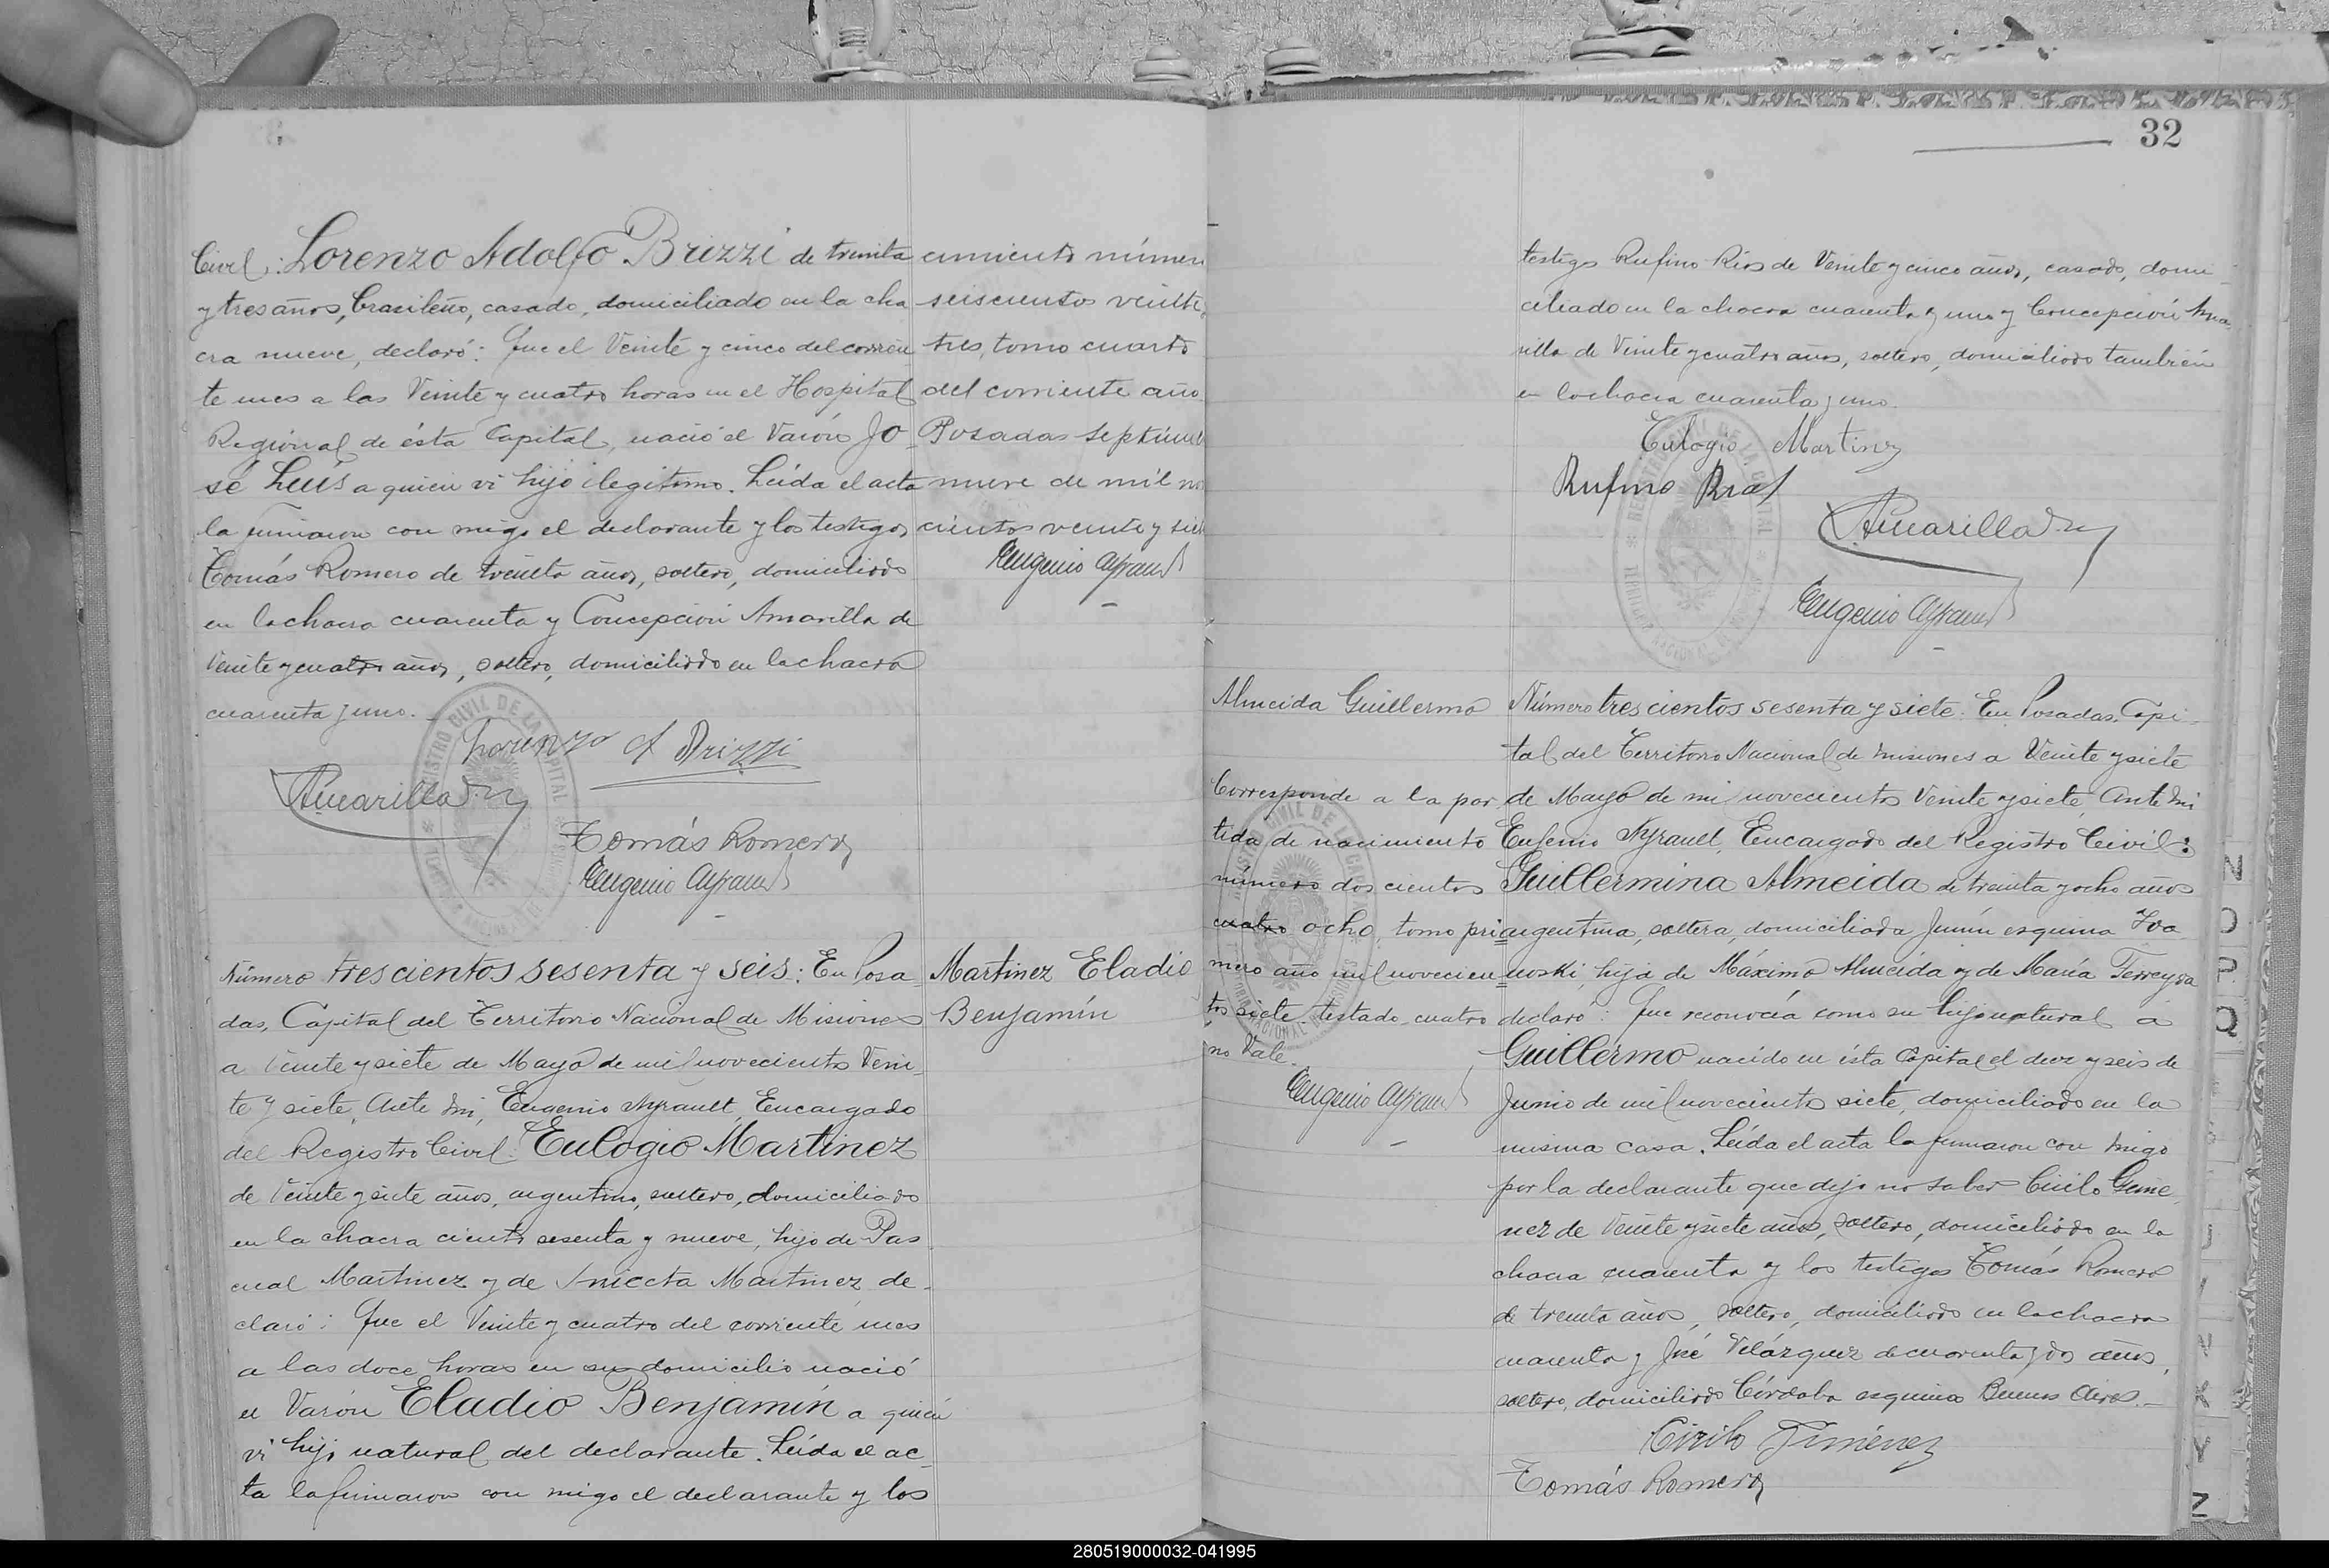 Civil: Lorenzo Adolfo Brizzi de treinta
y tres años, brasileño, casado, domiciliado en la cha
cra nueve, declaró: Que el Veinte y cinco del corrien
te mes a las Veinte y cuatro horas en el Hospital
Regional de ésta Capital, nació el Varón Jo-
sé Luís a quien vi hijo ilegitimo. Leída el acta
la firmaron con migo el declarante y los testigos
Tomás Romero de treinta años, soltero, domiciliado
en la chacra cuarenta y Concepción Amarilla de
Veinte y cuatro años, soltero, domiciliado en la chacra
cuarenta y uno.
cimiento númer
seiscientos veinti
tres, tomo cuarto
del corriente año
Posadas Septiemb
nueve de mil no
cientos veinte y siet
Eugenio Ayrault
Lorenzo A Brizzi
CAmarilla
Tomás Romero
Eugenio Ayrault
Número trescientos sesenta y seis: En Posa
das, Capital del Territorio Nacional de Misiones
a Veinte y siete de Mayo de mil novecientos Vein-
te y siete, Ante mi, Eugenio Ayrault, Encargado
del Registro Civil: Eulogio Martinez
de Veinte y siete años, argentino, soltero, domiciliado
en la chacra ciento sesenta y nueve, hijo de Pas
cual Martinez y de Aniceta Martinez, de-
claró: Que el Veinte y cuatro del corriente mes
a las doce horas en su domicilio nació
el Varón Eladio Benjamín a quien
vi hijo natural del declarante. Leída el ac
ta la firmaron con migo el declarante y los
Martinez Eladio
Benjamín
32
testigos Rufino Rios de Veinte y cinco años, casado, domi-
ciliado en la chacra cuarenta y uno y Concepción Ama
rilla de Veinte y cuatro años, soltero, domiciliado también
en la chacra cuarenta y uno.
Eulogio Martinez
Rufino
CAmarilla
Eugenio Ayrault
Almeida Guillermo
Corresponde a la par
tida de nacimiento
número doscientos
cuatro ocho, tomo pri
mero año mil novecien
tos siete. testado cuatro
no Vale.
Eugenio Ayrault
Número trescientos sesenta y siete: En Posadas, Capi-
tal del Territorio Nacional de Misiones a Veinte y siete
de Mayo de mil novecientos Veinte y siete, Ante mi
Eugenio Ayrault, Encargado del Registro Civil:
Guillermina Almeida de treinta y ocho años
argentina, soltera, domiciliada Junín esquina Iva
noski, hija de Máximo Almeida y de María Ferreyra
declaró: Que reconocía como su hijo natural a
Guillermo nacido en ésta Capital el diez y seis de
Junio de mil novecientos siete, domiciliado en la
misma casa. Leída el acta la firmaron con migo
por la declarante que dijo no saber Cirilo Gime
nez de Veinte y siete años, soltero, domiciliado en la
chacra cuarenta y los testigos Tomás Romero
de treinta años, soltero, domiciliado en la chacra
cuarenta y José Velázquez de cuarenta y dos años,
soltero, domiciliado Córdoba esquina Buenos Aires.-
Cirilo Jiménez
Tomás Romero
N
O
P
Q
V
Z
280519000032-041995